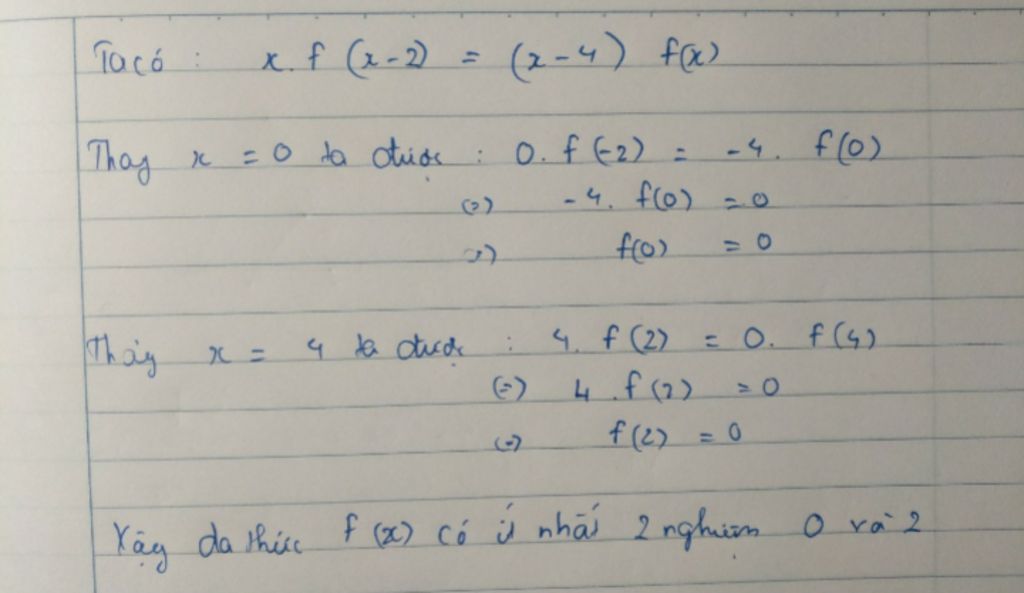 Ta có : x. f (x-2) = (x-4) f(x)
Thay x = 0 ta được : 0. f (-2) = -4. f(0)
(=) -4. f(0) = 0
(=) f(0) = 0
Thay x = 4 ta được : 4. f (2) = 0. f (4)
(=) 4 . f (2) = 0
(=) f (2) = 0
Vậy đa thức f (x) có ít nhất 2 nghiệm 0 và 2